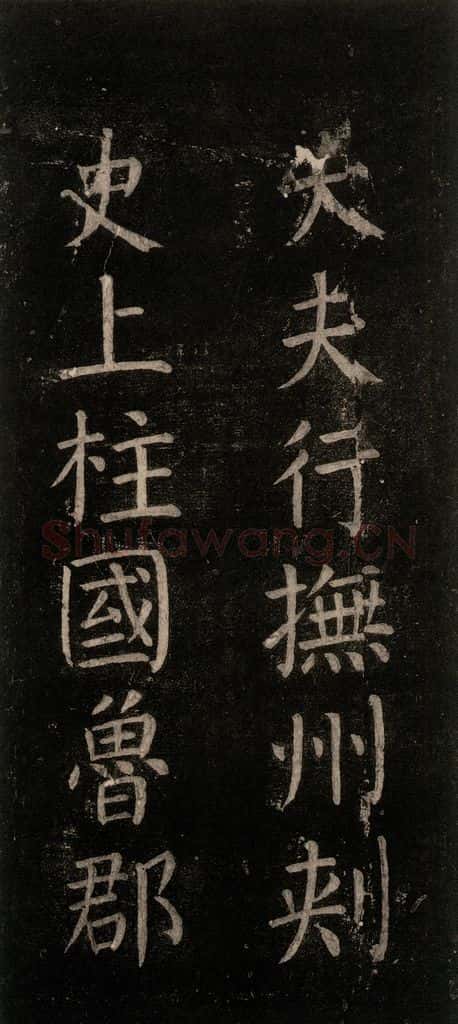 大夫行撫州刺
史上柱國魯郡
Shufawang.CN